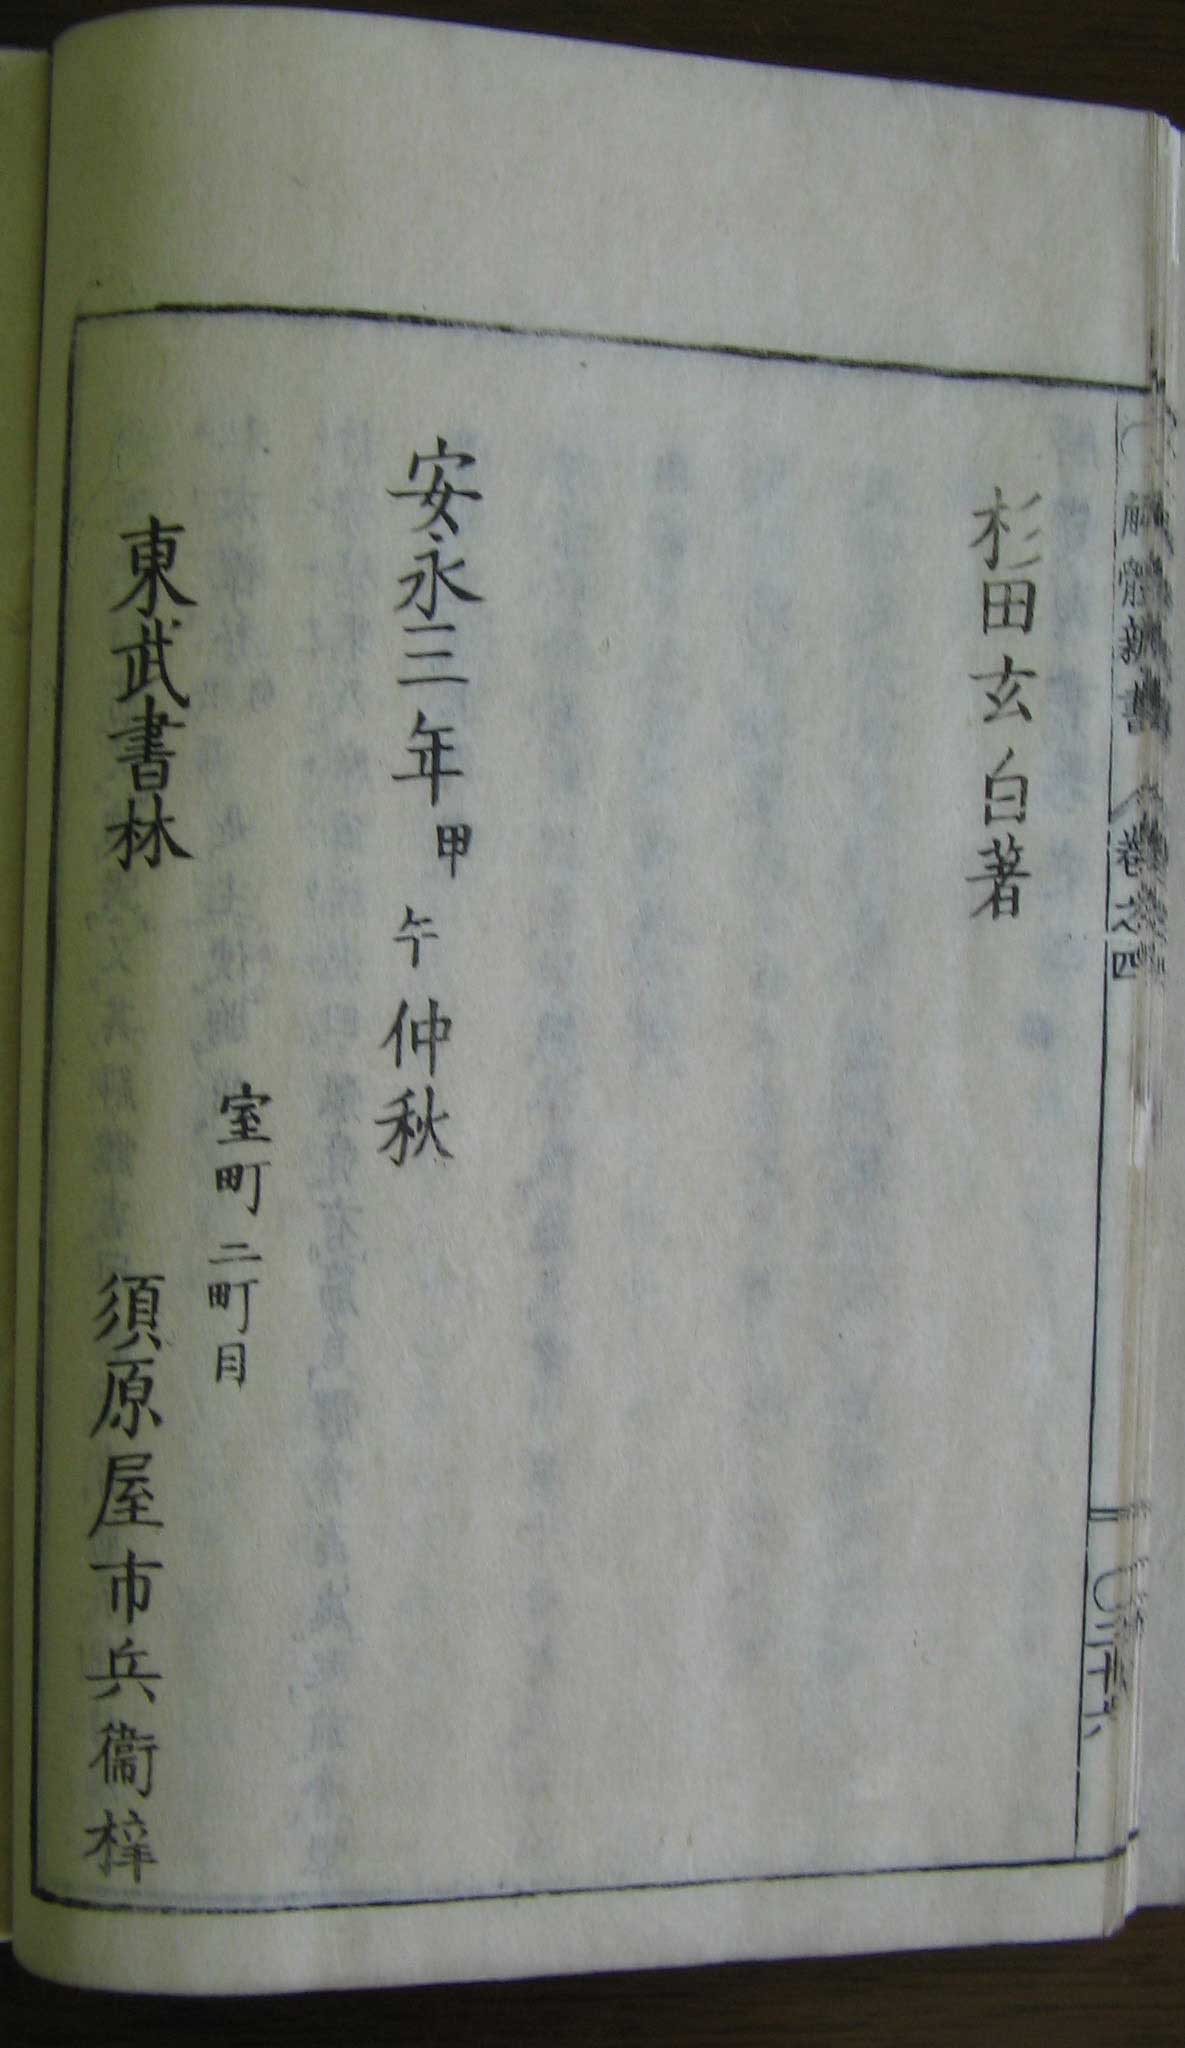 解體新書 卷之四
二十六
杉田玄白著
安永三年甲午仲秋
室町二町目
東武書林 須原屋市兵衞梓